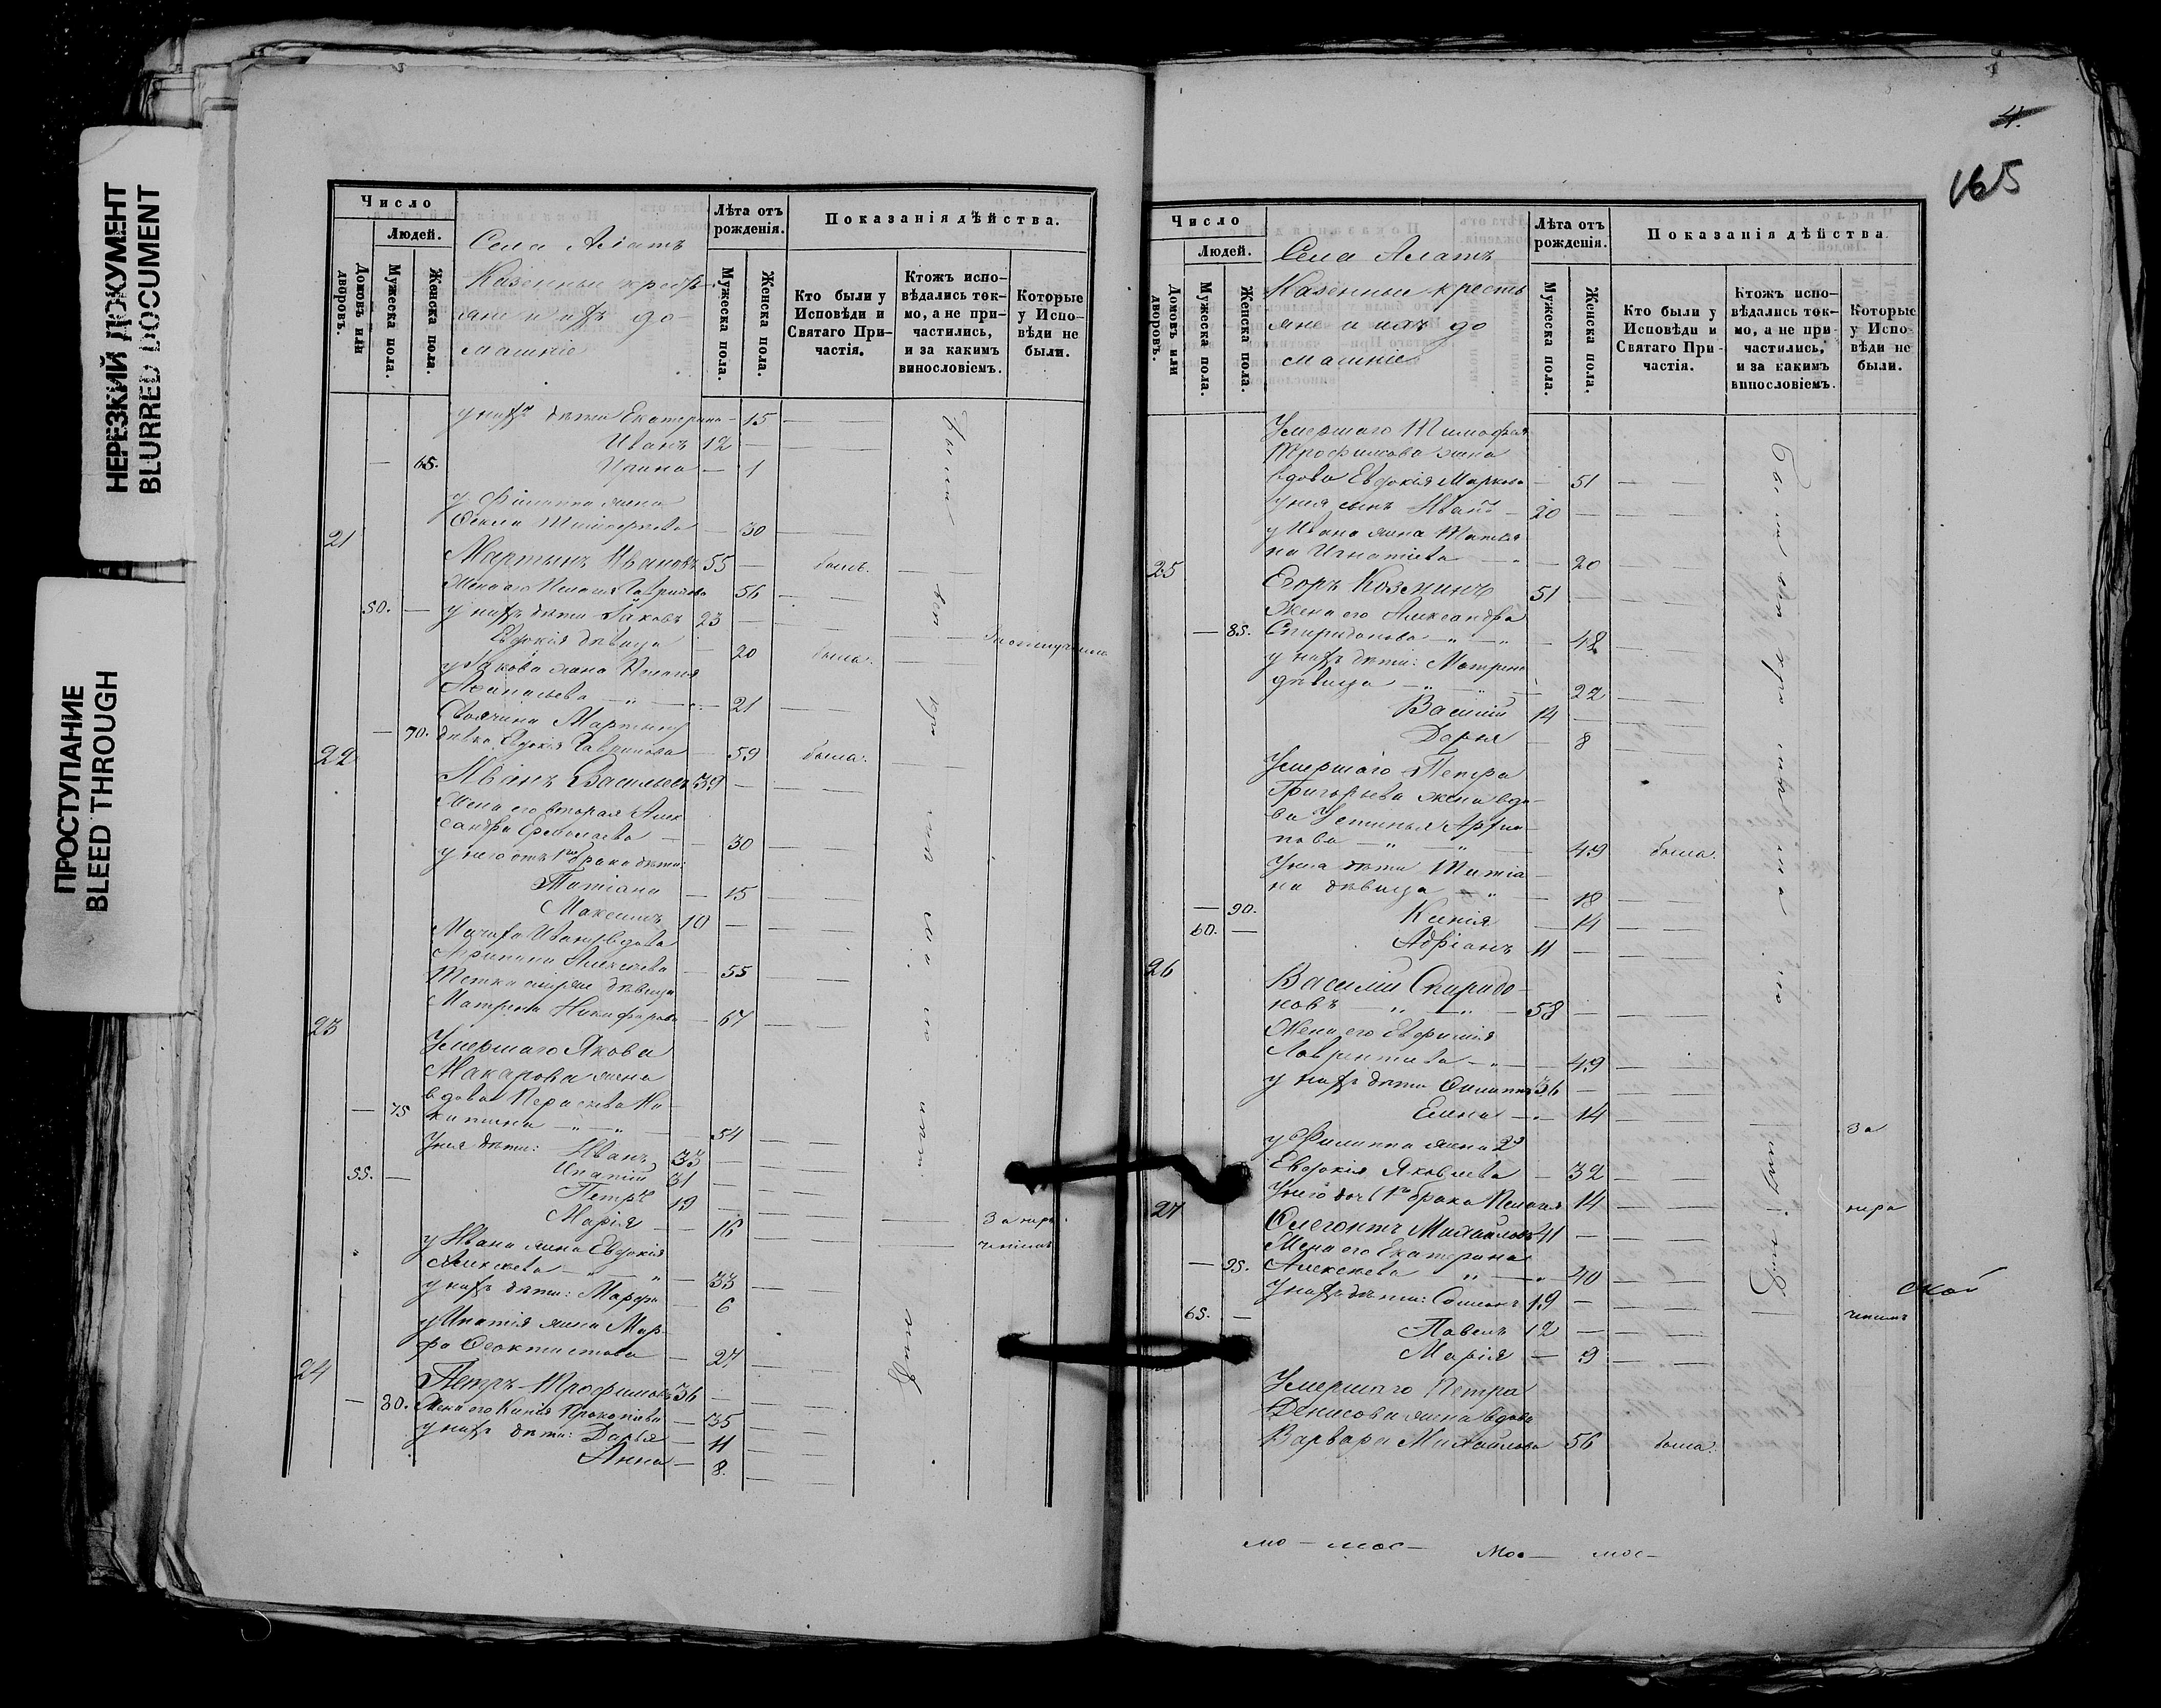 НЕРЕЗКИЙ ДОКУМЕНТ
BLURRED DOCUMENT
ПРОСТУПАНИЕ
BLEED THROUGH
Число
Людей.
Домовъ или дворовъ.
Мужеска пола.
Женска пола.
Села Алатъ
Казенные кресть-
яне и ихъ до-
машніе
Лѣта отъ рожденія.
Мужеска пола.
Женска пола.
Показанія дѣйства.
Кто были у Исповѣди и Святаго При-частія.
Ктожъ испо-вѣдались ток-мо, а не при-частились, и за какимъ винословіемъ.
Которые у Испо-вѣди не были.
у нихъ дѣти Екатерина — 15 —
Иванъ 12 —
— 65. Ирина — 1
у Филиппа жена
Фекла — 30 —
21
Мартынъ Ивановъ 55 — былъ.
Жена его Пелагія Гаврилова 56 —
50. — у нихъ дѣти Іаковъ 23 —
Евдокія дѣвица — 20 была.
у Іакова жена Пелагія
— 21 —
Своячина Мартыну
— 70. дѣвка Евдокія Гаврилова — 59 была.
22
Иванъ Васильевъ 39 —
Жена его вторая Алек-
сандра Ермолаева — 30 —
у него отъ 1го брака дѣти:
Татіана — 15 —
Максимъ 10 —
Мачиха Ивану вдова
Алексѣева — 55 —
Тетка ему же дѣвица
Матрена Никифорова — 67 —
23
Умершаго Якова
Макарова жена
вдова Параскева Ни-
— 75 китина — 54 —
У нея дѣти: Иванъ 33 —
55. — Ипатій 31 —
Петръ 19 —
Марія — 16 —
у Ивана жена Евдокія
Алексѣева — 33 —
у нихъ дѣти: Марфа — 6 —
у Ипатія жена Мар-
фа Феоктистова — 27 —
24
Петръ Трофимовъ 36 —
— 80. Жена его Ксенія Прокопіева — 35 —
у нихъ дѣти: Дарья — 11 —
Анна — 8. —
4.
165
Число
Людей.
Домовъ или дворовъ.
Мужеска пола.
Женска пола.
Села Алатъ
Казенные кресть
яне и ихъ до
машніе
Лѣта отъ рожденія.
Мужеска пола.
Женска пола.
Показанія дѣйства
Кто были у Исповѣди и Святаго При-частія.
Ктожъ испо-вѣдались ток-мо, а не при-частились, и за какимъ винословіемъ.
Которые у Испо-вѣди не были.
Умершаго Тимофея
Трофимова жена
вдова Евдокія Маркова — 51 —
у нея сынъ Иванъ — 20 —
у Ивана жена Татья
на Игнатіева — 20
25
Егоръ Козминъ 51 —
Жена его Александра
— 85. Спиридонова — 48 —
у нихъ дѣти: Матрена
дѣвица — 22 —
Василій 14 —
Дарья — 8 —
Умершаго Петра
Григорьева жена вдо-
ва Устинья Архи-
пова — 49 была.
У нея дѣти Татіа-
на дѣвица — 18
— 90. Ксенія — 14
60. — Адріанъ 11 —
26
Василій Спиридо-
новъ — 58 —
Жена его Евфимія
Лаврентіева — 49 —
у нихъ дѣти Филиппъ 36 —
Елена — 14
у Филиппа жена 2я
Евдокія Яковлева — 32 —
У него дочь 1го брака Пелагія 14 —
27
Флегонтъ Михайловъ 41 —
Жена его Екатерина
— 95. Алексѣева — 40 —
У нихъ дѣти: Симеонъ 19 —
65. — Павелъ 12 —
Марія — 9 —
Умершаго Петра
Денисова жена вдова
Варвара Михайлова 56 была.